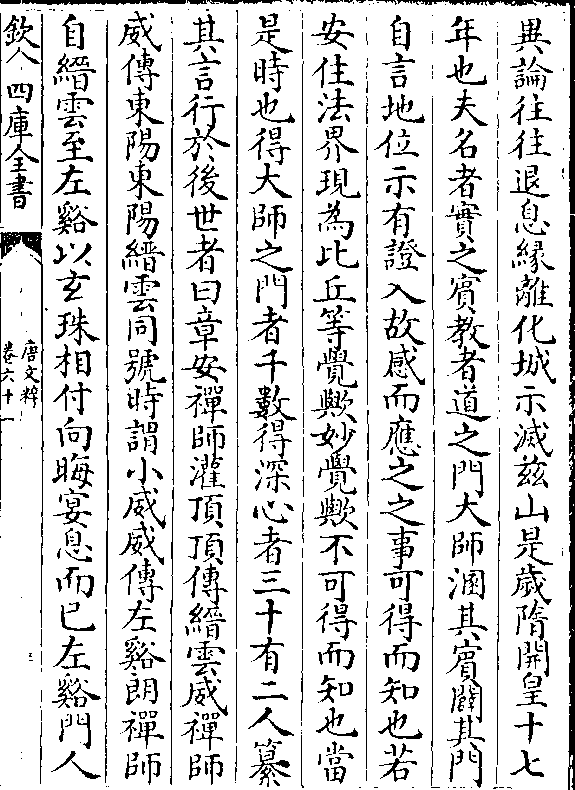 異論往往退息緣離化城示滅兹山是歲隋開皇十七
年也夫名者實之賓教者道之門大師溷其賓闢其門
自言地位示有證入故感而應之之事可得而知也若
安住法界現為比丘等覺歟妙覺歟不可得而知也當
是時也得大師之門者千數得深心者三十有二人纂
其言行於後世者曰章安禪師灌頂頂傳縉雲威禪師
威傳東陽東陽縉雲同號時謂小威威傳左谿朗禪師
自縉雲至左谿以玄珠相付向晦宴息而已左谿門人
欽定四庫全書
唐文粹
卷六十一